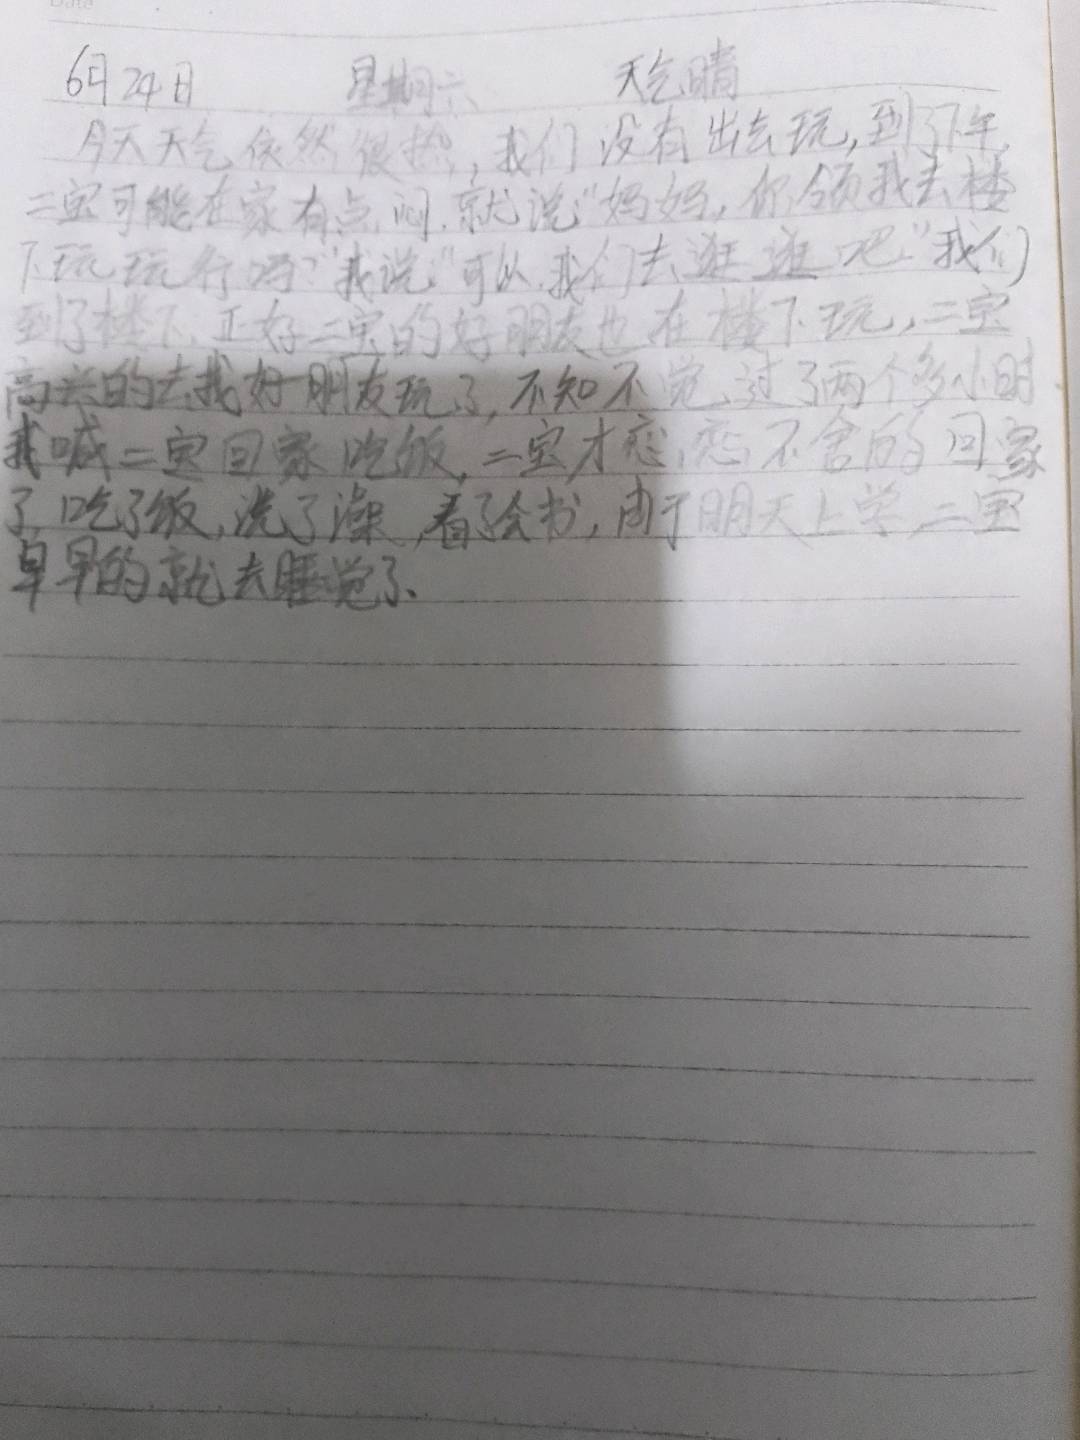 Date
6月24日 星期六 天气晴
今天天气依然很热,我们没有出去玩,到了下午,
二宝可能在家有点闷,就说"妈妈,你领我去楼
下玩玩行吗?"我说"可以,我们去逛逛吧."我们
到了楼下,正好二宝的好朋友也在楼下玩,二宝
高兴的去找好朋友玩了,不知不觉,过了两个多小时.
我喊二宝回家吃饭,二宝才恋恋不舍的回家
了,吃了饭,洗了澡,看了会书,由于明天上学,二宝
早早的就去睡觉了.